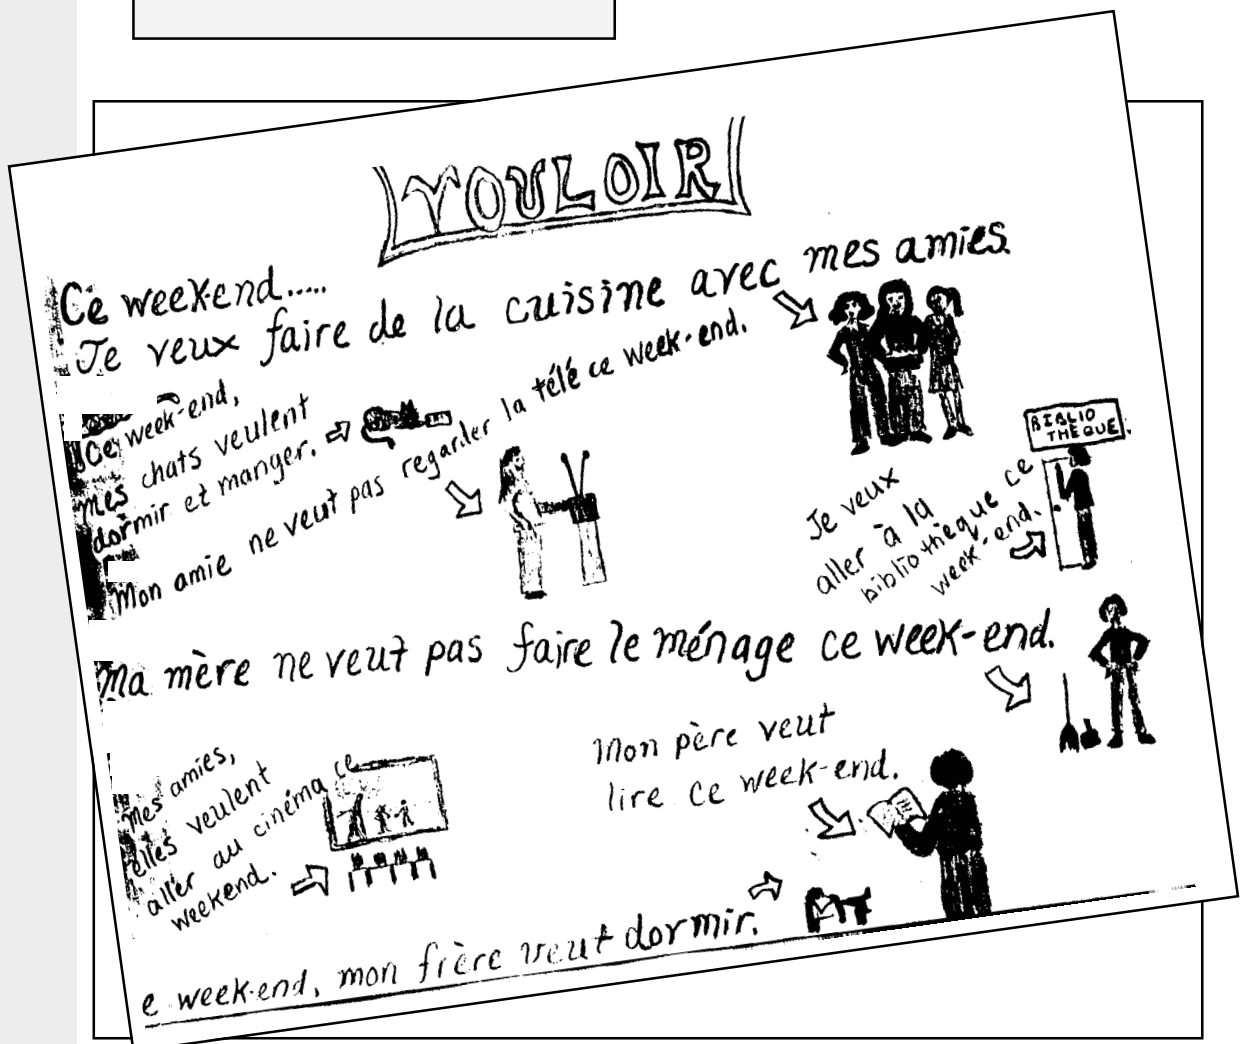 VOULOIR
Ce week-end.....
Je veux faire de la cuisine avec mes amies.
Ce week-end,
mes chats veulent
dormir et manger.
Mon amie ne veut pas regarder la télé ce week-end.
BIBLIO
THEQUE.
Je veux
aller à la
bibliothèque ce
week-end.
Ma mère ne veut pas faire le ménage ce week-end.
Mes amies,
elles veulent
aller au cinéma ce
weekend.
Mon père veut
lire ce week-end.
e week-end, mon frère veut dormir.